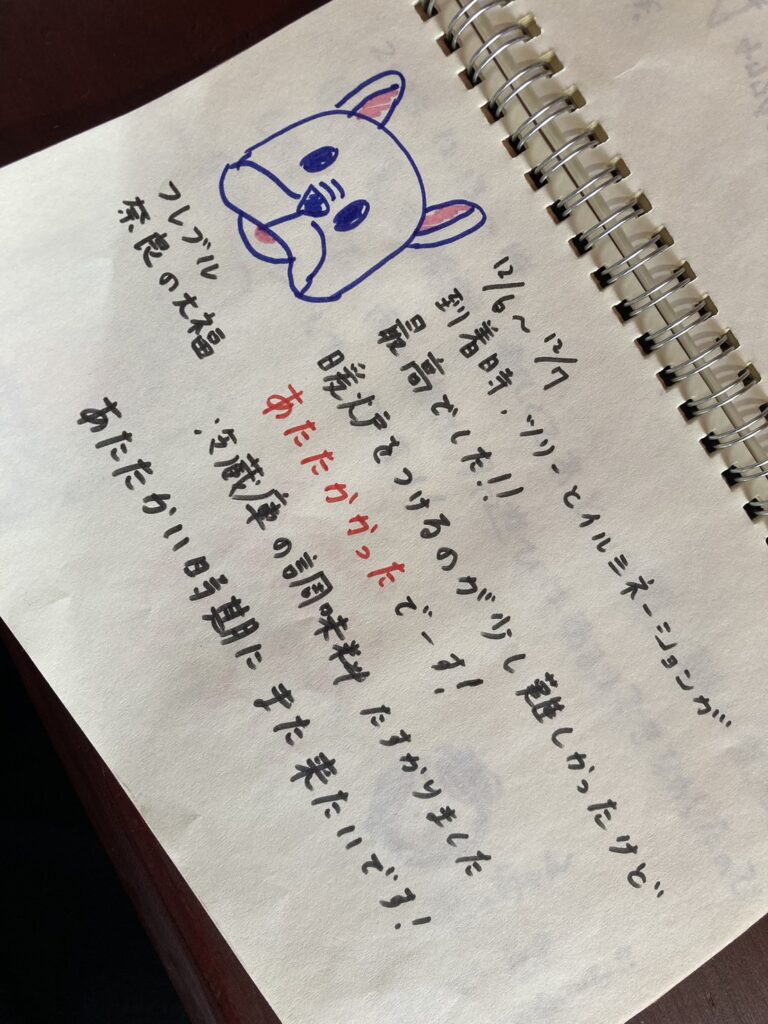 12/6〜12/7
到着時、ツリーとイルミネーションが
最高でした!!
暖炉をつけるのが少し難しかったけど
あたたかかったでーす!
冷蔵庫の調味料 たすかりました
あたたかい時期に また来たいです!
フレブル
奈良の大福